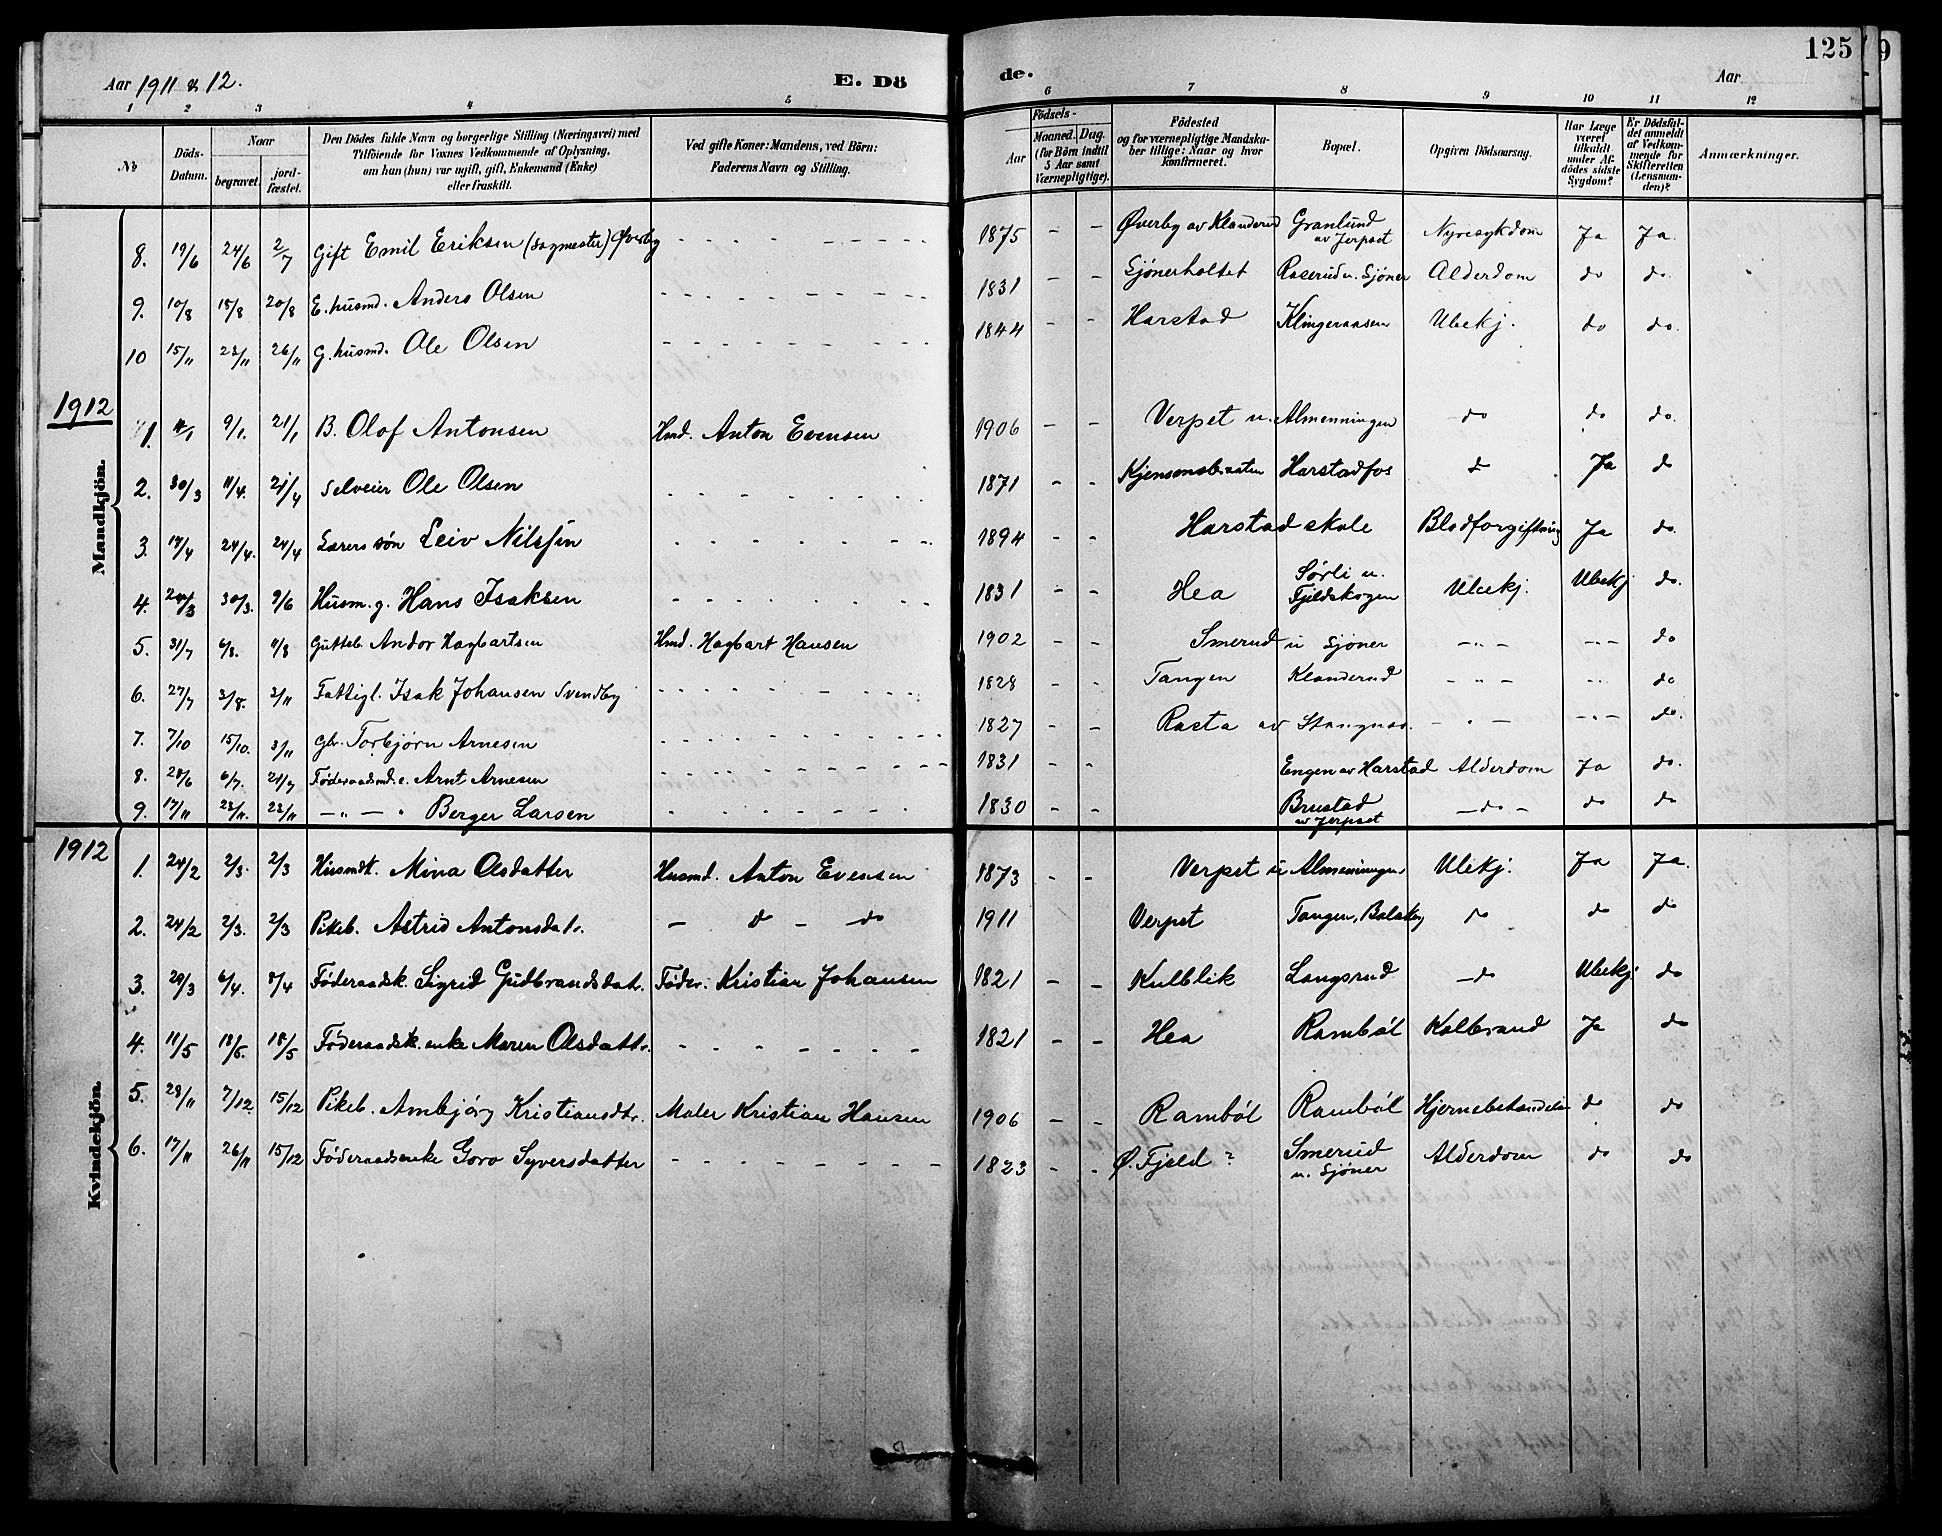 125
9
Aar 1911 & 12.
E. Dö
de.
Aar
1 2 3 4 5 6 7 8 9 10 11 12
№
Döds-Datum.
Naar
begravet.
jord-fæstet.
Den Dödes fulde Navn og borgerlige Stilling (Næringsvei) med
Tilföiende for Voxnes Vedkommende af Oplysning,
om han (hun) var ugift, gift, Enkemand (Enke)
eller fraskilt.
Ved gifte Koner: Mandens, ved Börn:
Faderens Navn og Stilling.
Födsels-
Aar
Maaned. Dag.
(for Börn indtil
5 Aar samt
Værnepligtige).
Födested
og for værnepligtige Mandska-
ber tillige: Naar og hvor
konfirmeret.
Bopæl.
Opgiven Dödsaarsag.
Har Læge
været
tilkaldt
under Af-
dödes sidste
Sygdom?
Er Dödsfal-
det anmeldt
af Vedkom-
mende for
Skifteretten
(Lensman-
den)?
Anmærkninger.
8. 19/6 24/6 2/7 Gift Emil Eriksen (sagmester) Øverby - - - - 1875 - - Øverby av Klanderud Granlund av Jerpset Nyresykdom Ja Ja.
9. 10/8 15/8 20/8 E. husmd. Anders Olsen - - - - 1831 - - Sjönerholtet Roserud u. Sjöner Alderdom do do.
10 15/11 23/11 26/11 G. husmd. Ole Olsen - - - - 1844 - - Harstad Klingeraasen Ubekj. do do.
1912
Mandkjön.
1. 9/1. 21/1 B. Olof Antonsen Hmd. Anton Evensen 1906 - - Verpet u. Almenningen do do do.
2. 30/3 11/4. 21/4 Selveier Ole Olsen - - - - 1871 - - Harstadfos do Ja do
3. 17/4 24/4. 24/4 Lærers sön Leiv Nilssen - - - - 1894 - - Harstad skole Blodforgiftning Ja do.
4. 24/3 30/3. 9/6 Husm. g. Hans Isaksen - - - - 1831 - - Hea Sørli u. Fjeldskogen Ubekj. Ubekj do.
5. 31/7 6/8. 11/8 Gutteb. Andor Hagbartsen Hmd. Hagbart Hansen 1902 - - Smerud u Sjöner - " - - " - do
6. 27/7 3/8. 3/11 Fattigl. Isak Johansen Svendby - - - - 1828 - - Tangen Klanderud - " - - " - do
7. 7/10 15/10. 3/11 Torbjørn Arnesen - - - - 1827 - - Rasta av Stangnes. - " - - " - do.
8. 28/6 6/7. 21/7 Föderaadsmd. e. Arnt Arnesen - - - - 1831 - - Engen av Harstad Alderdom Ja do.
9. 17/11 23/11. 23/11 - " - " Berger Larsen - - - - 1830 - - Brustad av Jerpset - do - do do
1912
Kvindekjön.
1. 24/2 2/3. 2/3 Husmdt. Mina Olsdatter Husmd. Anton Evensen 1873 - - Verpet u Almenningen Ubekj. Ja Ja.
2. 24/2 2/3. 2/3 Pikeb. Astrid Antonsdatr. - do - do 1911 Verpet Tangen, do do do
3. 29/3 6/4. 8/4 Föderaadsk. Sigrid Gudbrandsdatr. Föder. Kristian Johansen 1821 - - Kulblik Langsrud - do Ubekj do
4. 11/5 18/5. 18/5 Föderaadsk. enke Maren Olsdattr. - - - - 1821 - - Hea Rambøl Kolbrand Ja do
5. 28/11 7/12 15/12 Pikeb. Ambjörg Kristiansdtr. Maler Kristian Hansen 1906 - - Rambøl Rambøl do do
6. 17/11 26/11 15/12 Föderaadsenke Goro Syversdatter - - - - 1823 - - Ø. Fjeld ? Smerud u. Sjöner Alderdom do do